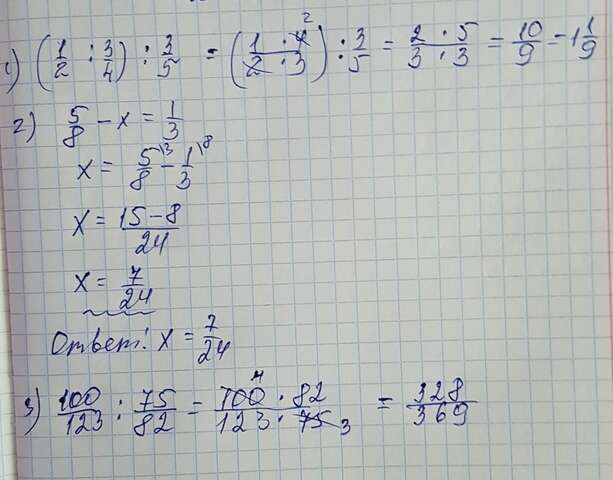 1) (1/2 : 3/4) : 3/5 = (1 · 4 2 / 2 · 3) : 3/5 = 2 · 5 / 3 · 3 = 10/9 = 1 1/9
2) 5/8 - x = 1/3
x = 5/8 \3 - 1/3 \8
x = 15 - 8 / 24
x = 7/24
Ответ: x = 7/24
3) 100/123 : 75/82 = 100 4 · 82 / 123 · 75 3 = 328/369